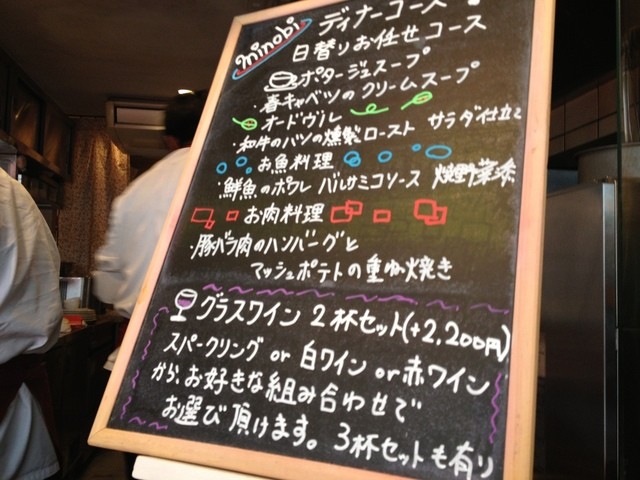 minobi ディナーコース
日替りお任せコース
ポタージュスープ
・春キャベツのクリームスープ
オードヴル
・和牛のハツの燻製ロースト サラダ仕立
お魚料理
・鮮魚のポワレ バルサミコソース 焼野菜添
お肉料理
・豚バラ肉のハンバーグと
マッシュポテトの重ね焼き
グラスワイン 2杯セット(+2,200円)
スパークリング or 白ワイン or 赤ワイン
から、お好きな組み合わせで
お選び頂けます。 3杯セットも有り